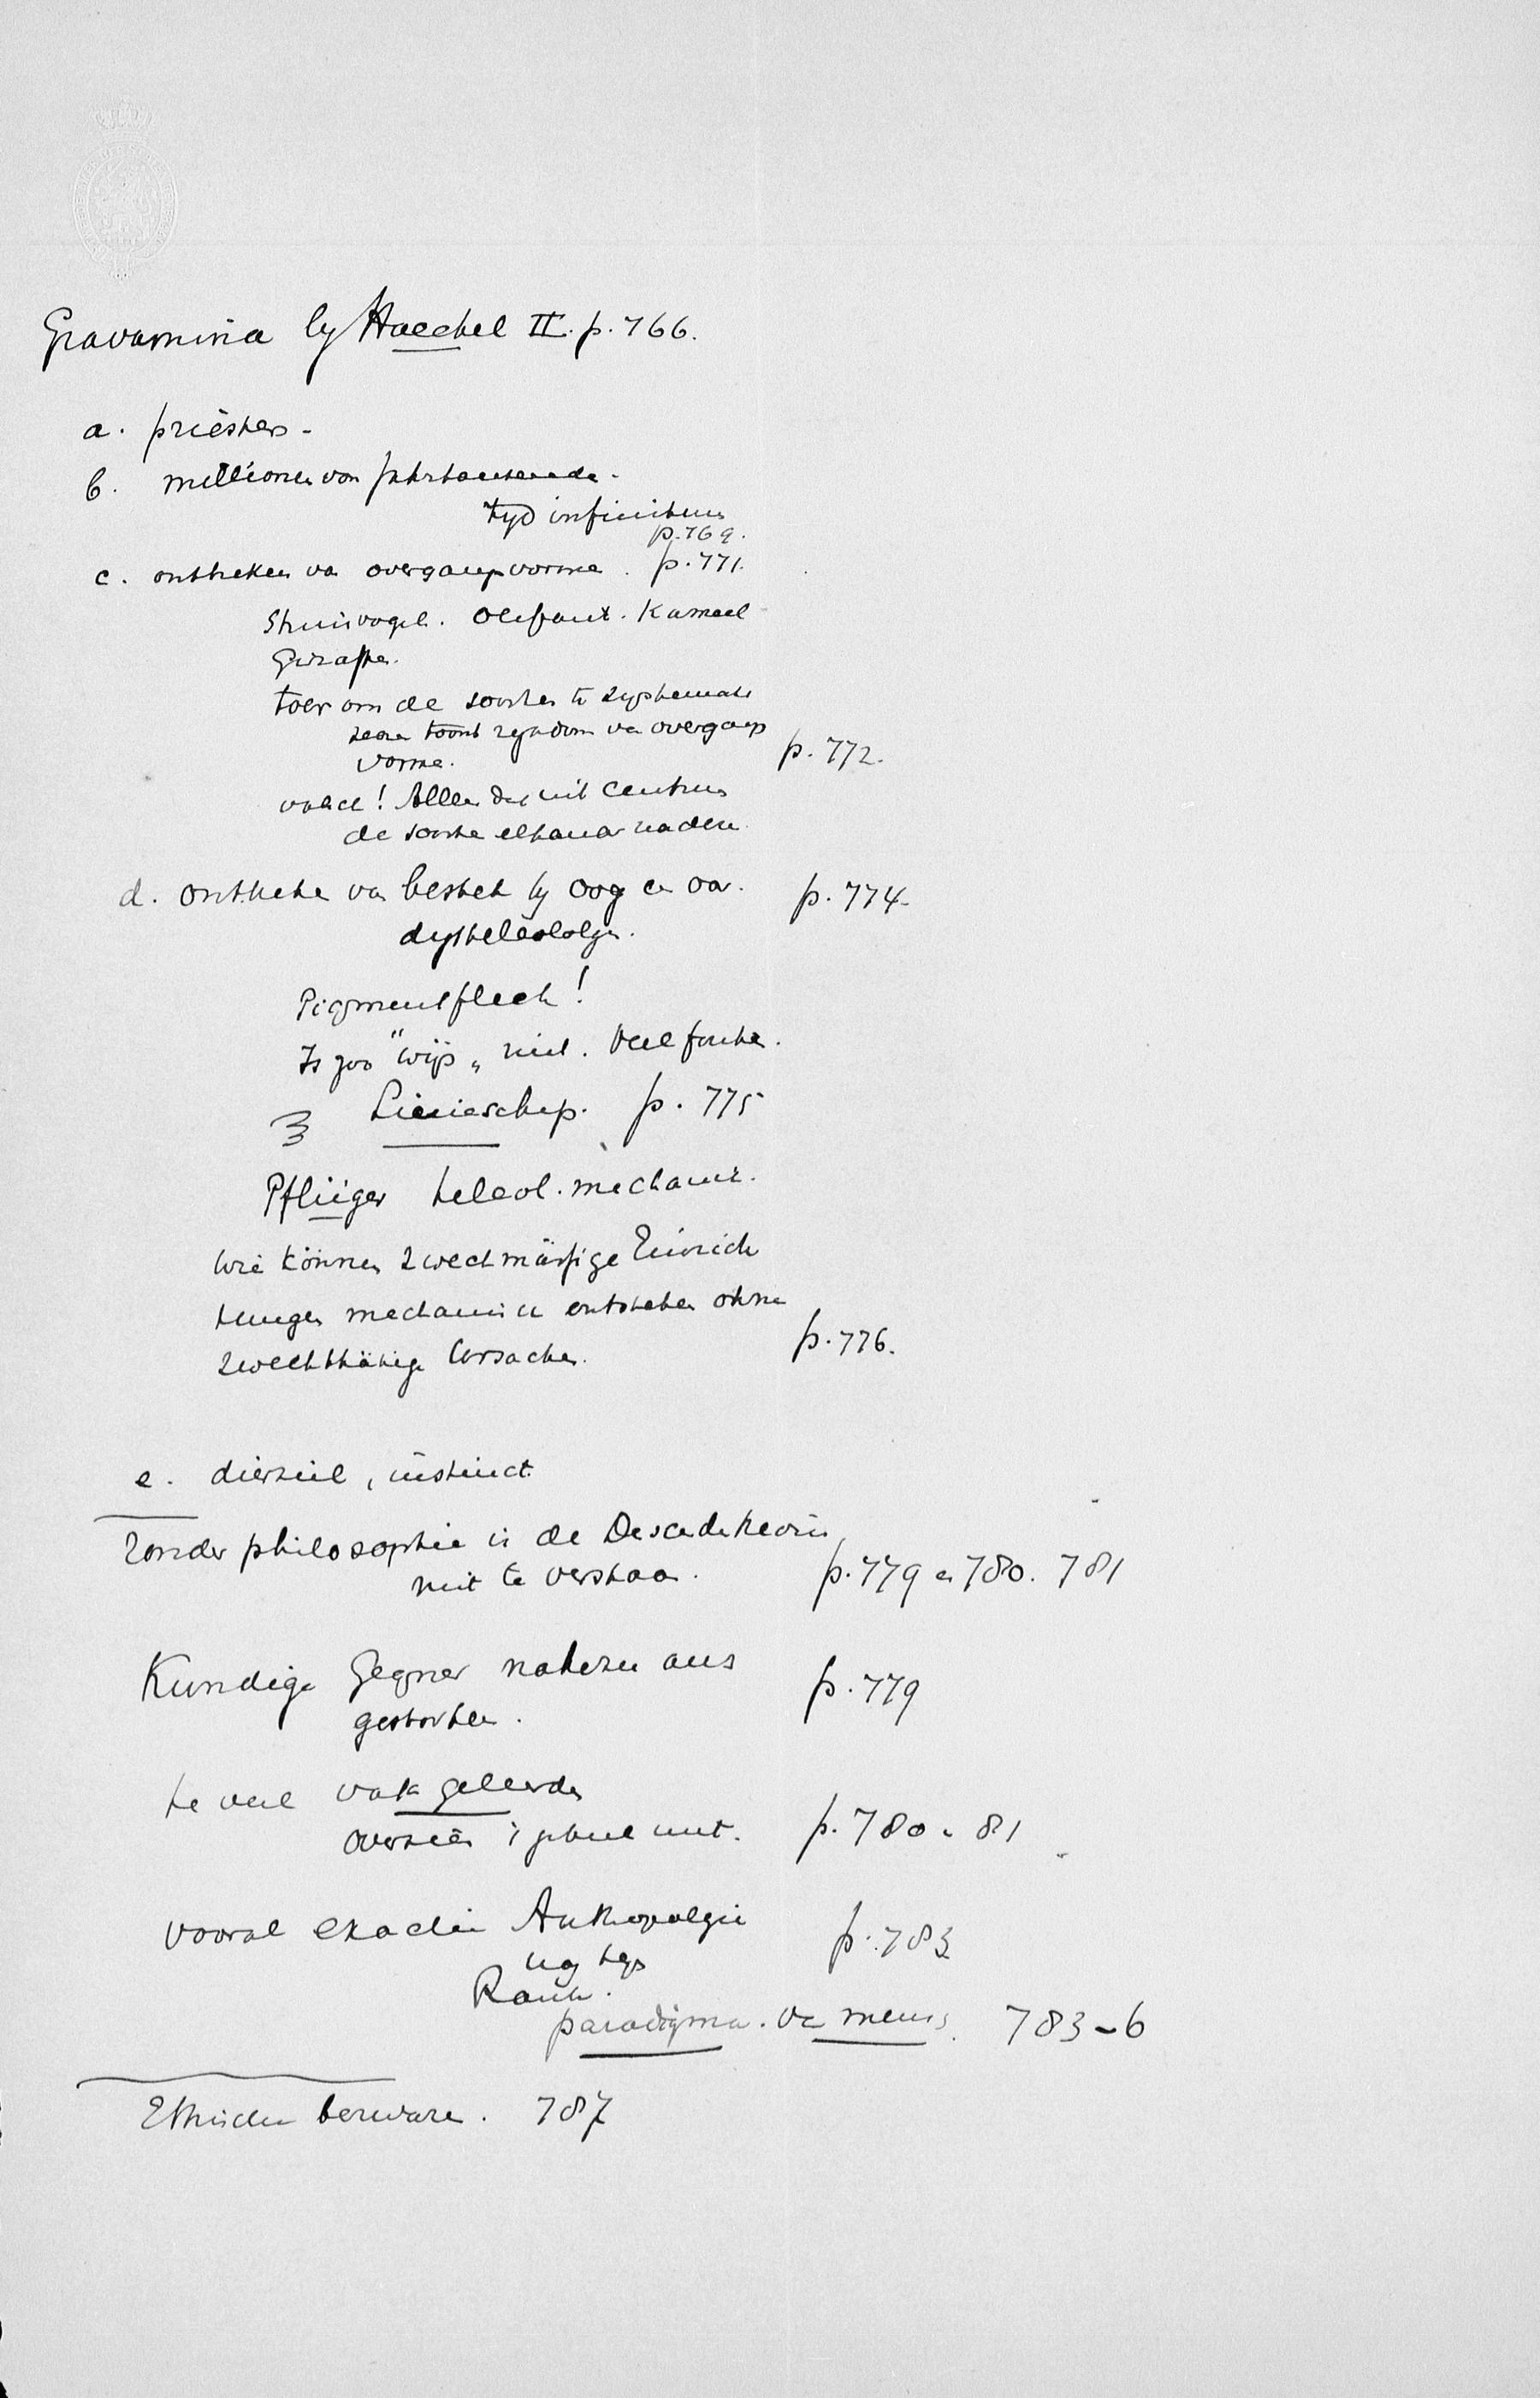 Gravamina by Haeckel II. p. 766.
a. priesters -
b. millionen von Jahrtausende -
tyd infinitum
p. 769.
c. ontbreken van overgangsvorme. p. 771.
Struisvogel. Olifant. Kameel
Giraffe.
toer om de soorten te systemati
seren toont rykdom van overgangs
vorme.
p. 772.
! Allen dus uit Centrum
de soorten elkander naderen
d. ontbreken van bestek by oog en oor. p. 774.
dysteleologie.
Pigmentfleck!
Is zoo "wijs" niet. Veel fouten.
Linieschap. p. 775
Pflüger teleol. mechanik.
Wie können zweckmässige Einrich
tungen mechanisch entstehen ohne
zweckthätige Ursachen. p. 776.
e. dierziel, instinct
Zonder philosophie is de Descendentheorie
niet te verstaan. p. 779 en 780. 781
Kundige Gegner nahezu aus
gestorben. p. 779
te veel vakgeleerden
overzien 't geheel niet. p. 780 - 81
vooral exacte Anthropologie p. 783
Ranke.
paradigma. van mens. 783-6
Ethische bezware. 787